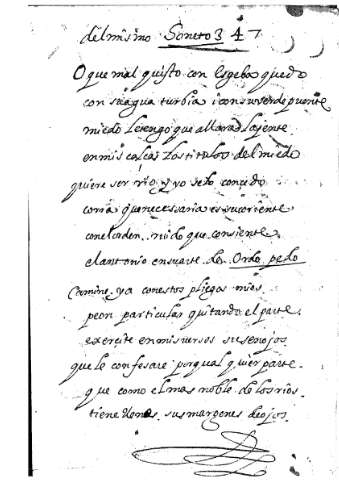 del mismo Soneto 347
O que mal quisto con Esgeba quedo
con su agua turbia i con su verde puente
miedo le tengo que allara la jente
en mis calças los titulos del miedo
quiere ser rio, y yo se lo concedo
corra que necessaria es su coriente
con el orden. ruido que consiente
el antonio en su arte de. Ordo pedo
Camine ya con estos pliegos mios
peon particular quitando el parte.
exercite en mis versos sus enojos
que le confesare por qual quier parte.
que como el mas noble de los rios
tiene llenas sus margenes de ojos.